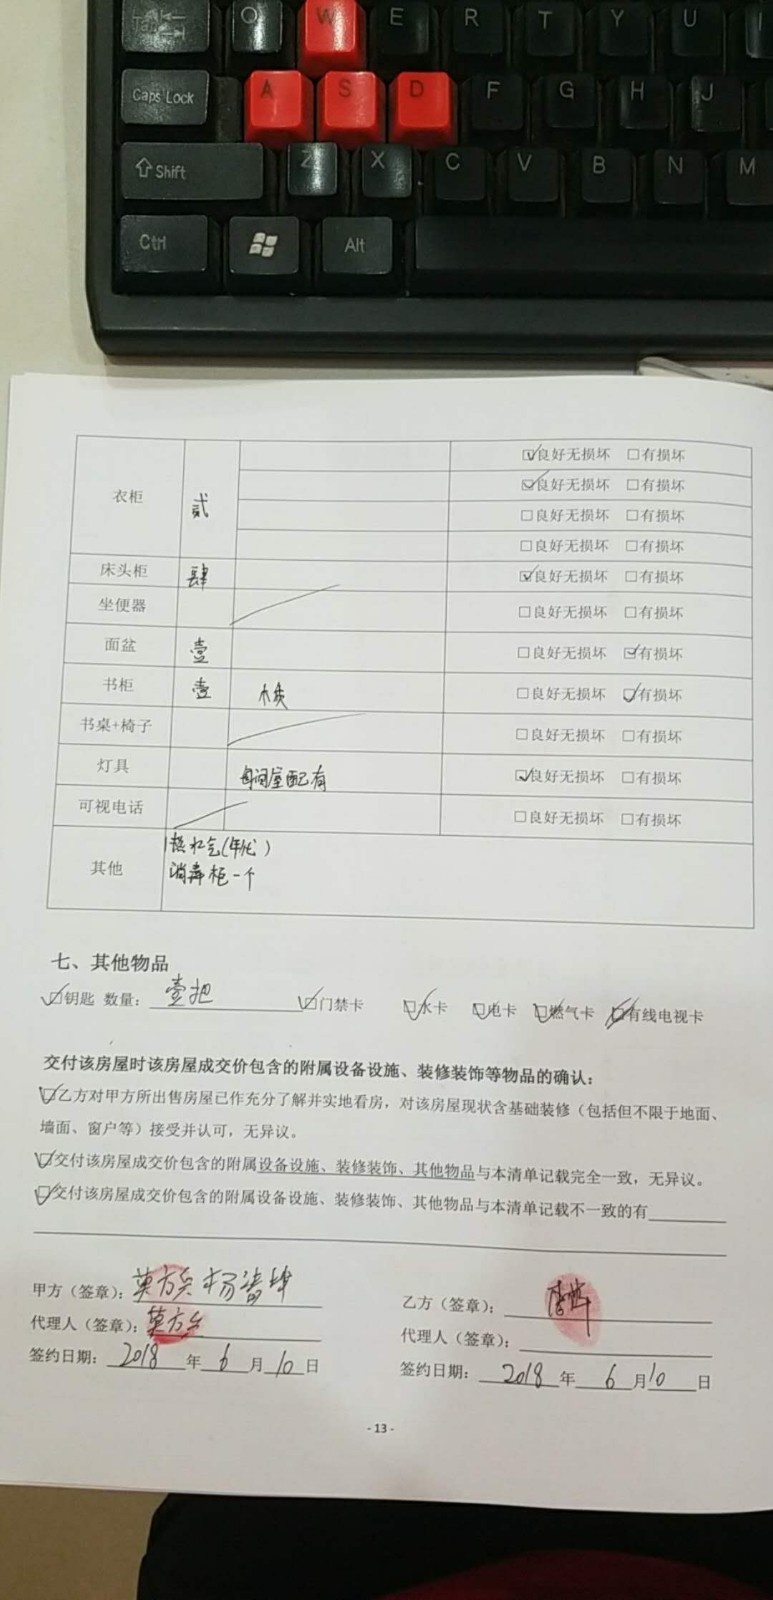 Q W E R T Y U I
Caps Lock A S D F G H J
Shift Z X C V B N M
Ctrl Alt
衣柜 贰 ☑良好无损坏 □有损坏
☑良好无损坏 □有损坏
□良好无损坏 □有损坏
□良好无损坏 □有损坏
床头柜 肆 ☑良好无损坏 □有损坏
坐便器 □良好无损坏 □有损坏
面盆 壹 □良好无损坏 ☑有损坏
书柜 壹 木质 □良好无损坏 ☑有损坏
书桌+椅子 □良好无损坏 □有损坏
灯具 每间屋配有 ☑良好无损坏 □有损坏
可视电话 □良好无损坏 □有损坏
其他
消毒柜一个
七、其他物品
☑钥匙 数量：壹把 ☑门禁卡 ☑水卡 ☑电卡 ☑燃气卡 ☑有线电视卡
交付该房屋时该房屋成交价包含的附属设备设施、装修装饰等物品的确认：
☑乙方对甲方所出售房屋已作充分了解并实地看房，对该房屋现状含基础装修（包括但不限于地面、
墙面、窗户等）接受并认可，无异议。
☑交付该房屋成交价包含的附属设备设施、装修装饰、其他物品与本清单记载完全一致，无异议。
☑交付该房屋成交价包含的附属设备设施、装修装饰、其他物品与本清单记载不一致的有
甲方（签章）： 乙方（签章）：
代理人（签章）： 代理人（签章）：
签约日期：2018年6月10日 签约日期：2018年6月10日
- 13 -